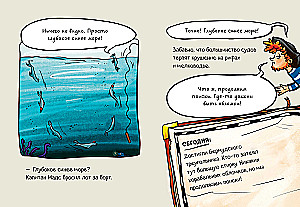 Ничего не видно. Просто
глубокое синее море!
— Глубокое синее море?
Капитан Иадс бросил лот за борт.
Точно! Глубокое синее море!
Забавно, что большинство судов
терпят крушение на рифах
и мелководье.
Что ж, продолжим
поиски. Где-то должны
быть обломки!
СЕГОДНЯ:
Достигли Бермудского
треугольника. Кто-то затеял
тут большую стирку. Никаких
корабельных обломков, но мы
продолжаем поиски!